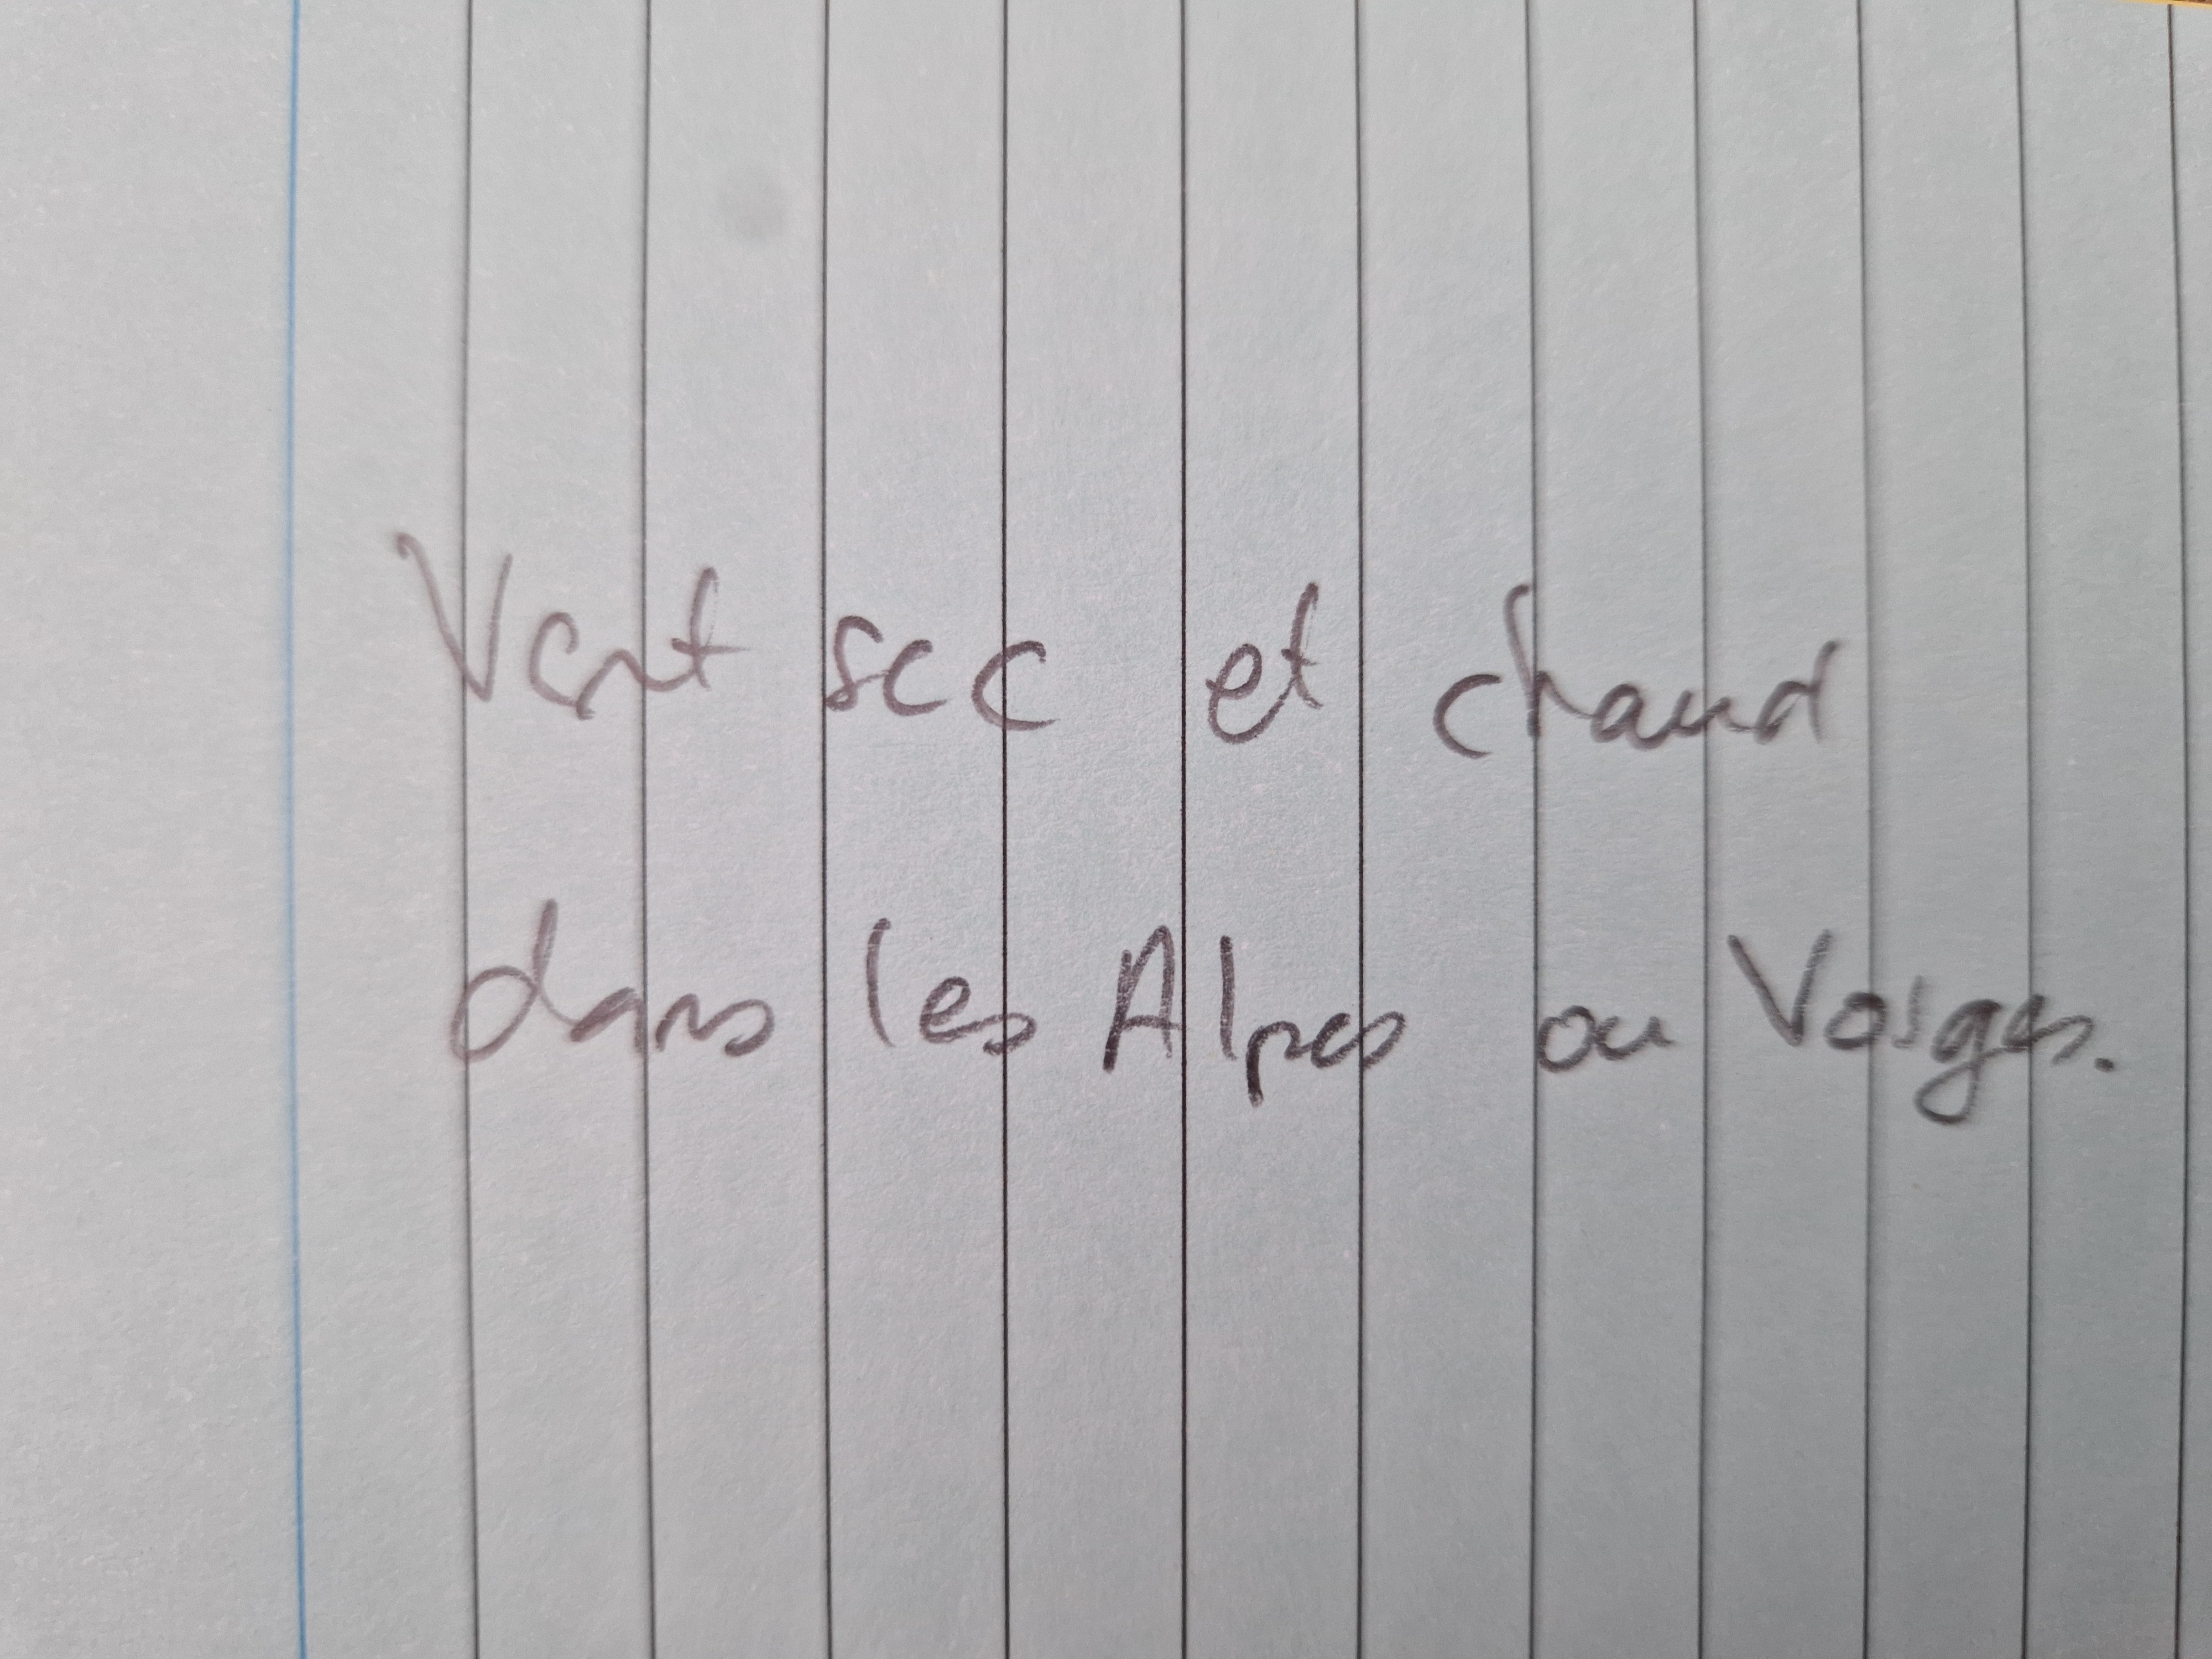 Vent sec et chaud
dans les Alpes ou Vosges.